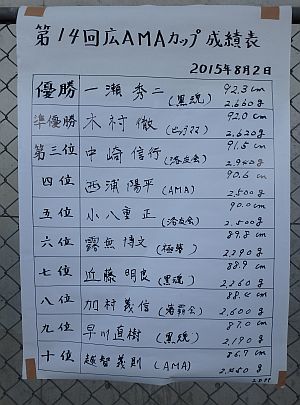 第14回広AMAカップ成績表
2015年8月2日
優勝 一瀬 秀二 (黒魂) 92.3 cm 2.660 g
準優勝 木村 徹 92.0 cm 2.620 g
第三位 中崎 信行 91.5 cm
四位 西浦 陽平 (AMA) 90.6 cm 2.500 g
五位 小八重 正 90.0 cm 2.500 g
六位 博文 89.8 cm 2.290 g
七位 近藤 明良 (黒魂) 88.9 cm 2.260 g
八位 加村 義信 88.4 cm 2.600 g
九位 早川 直樹 (黒魂) 87.0 cm 2.190 g
十位 越智 義則 (AMA) 86.7 cm